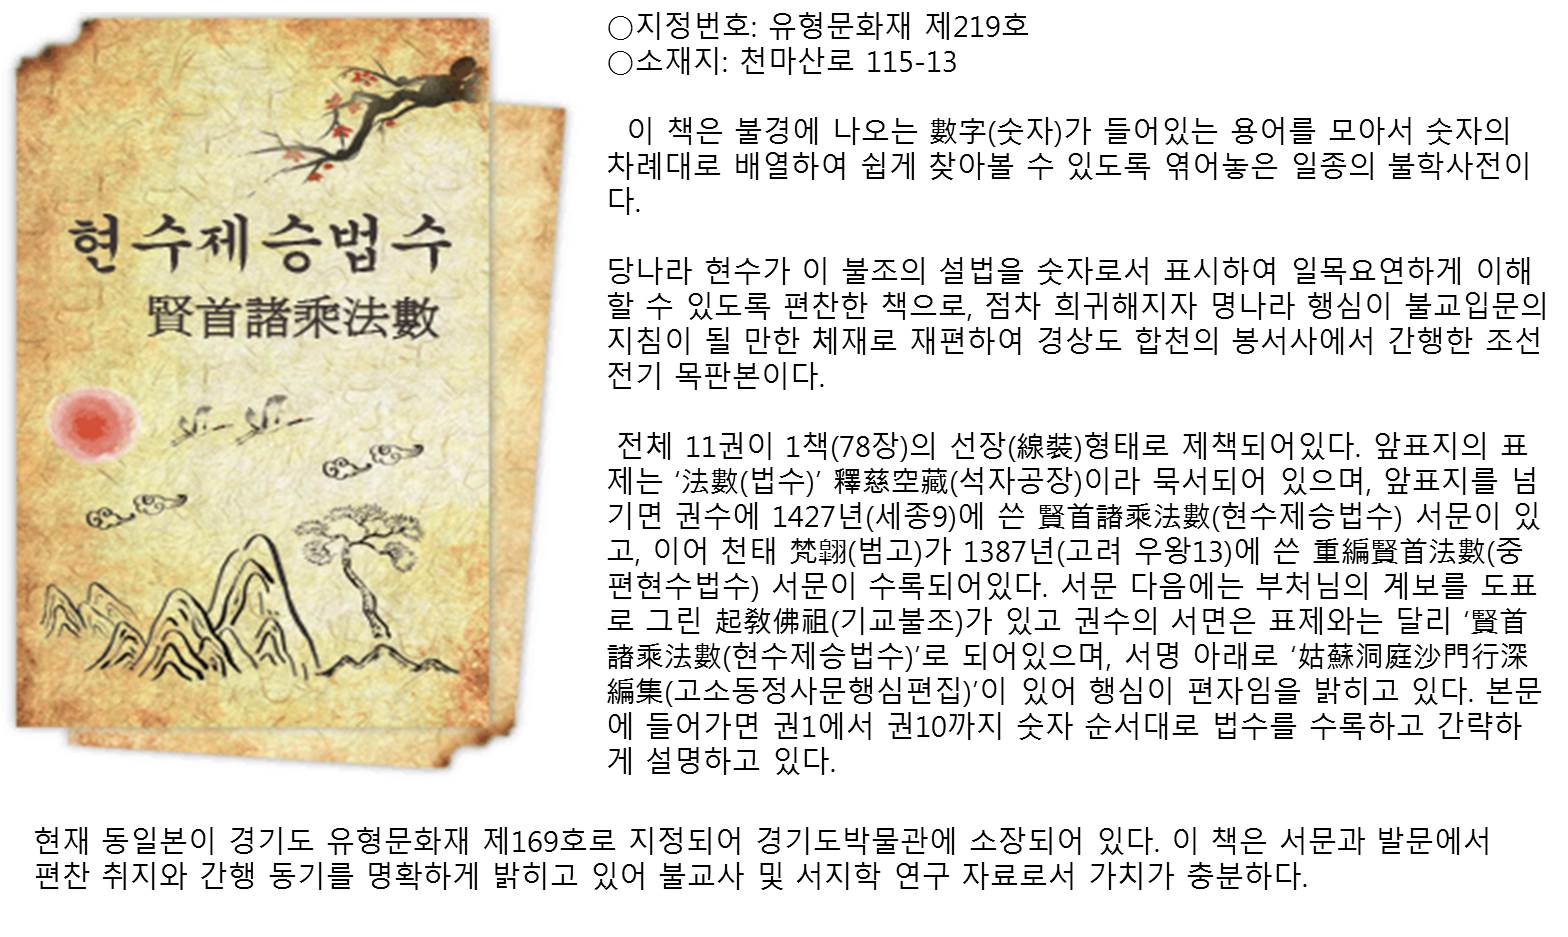 현수제승법수
賢首諸乘法數
○지정번호: 유형문화재 제219호
○소재지: 천마산로 115-13
이 책은 불경에 나오는 數字(숫자)가 들어있는 용어를 모아서 숫자의
차례대로 배열하여 쉽게 찾아볼 수 있도록 엮어놓은 일종의 불학사전이
다.
당나라 현수가 이 불조의 설법을 숫자로서 표시하여 일목요연하게 이해
할 수 있도록 편찬한 책으로, 점차 희귀해지자 명나라 행심이 불교입문의
지침이 될 만한 체재로 재편하여 경상도 합천의 봉서사에서 간행한 조선
전기 목판본이다.
전체 11권이 1책(78장)의 선장(線裝)형태로 제책되어있다. 앞표지의 표
제는 ‘法數(법수)’ 釋慈空藏(석자공장)이라 묵서되어 있으며, 앞표지를 넘
기면 권수에 1427년(세종9)에 쓴 賢首諸乘法數(현수제승법수) 서문이 있
고, 이어 천태 梵翺(범고)가 1387년(고려 우왕13)에 쓴 重編賢首法數(중
편현수법수) 서문이 수록되어있다. 서문 다음에는 부처님의 계보를 도표
로 그린 起敎佛祖(기교불조)가 있고 권수의 서면은 표제와는 달리 ‘賢首
諸乘法數(현수제승법수)’로 되어있으며, 서명 아래로 ‘姑蘇洞庭沙門行深
編集(고소동정사문행심편집)’이 있어 행심이 편자임을 밝히고 있다. 본문
에 들어가면 권1에서 권10까지 숫자 순서대로 법수를 수록하고 간략하
게 설명하고 있다.
현재 동일본이 경기도 유형문화재 제169호로 지정되어 경기도박물관에 소장되어 있다. 이 책은 서문과 발문에서
편찬 취지와 간행 동기를 명확하게 밝히고 있어 불교사 및 서지학 연구 자료로서 가치가 충분하다.